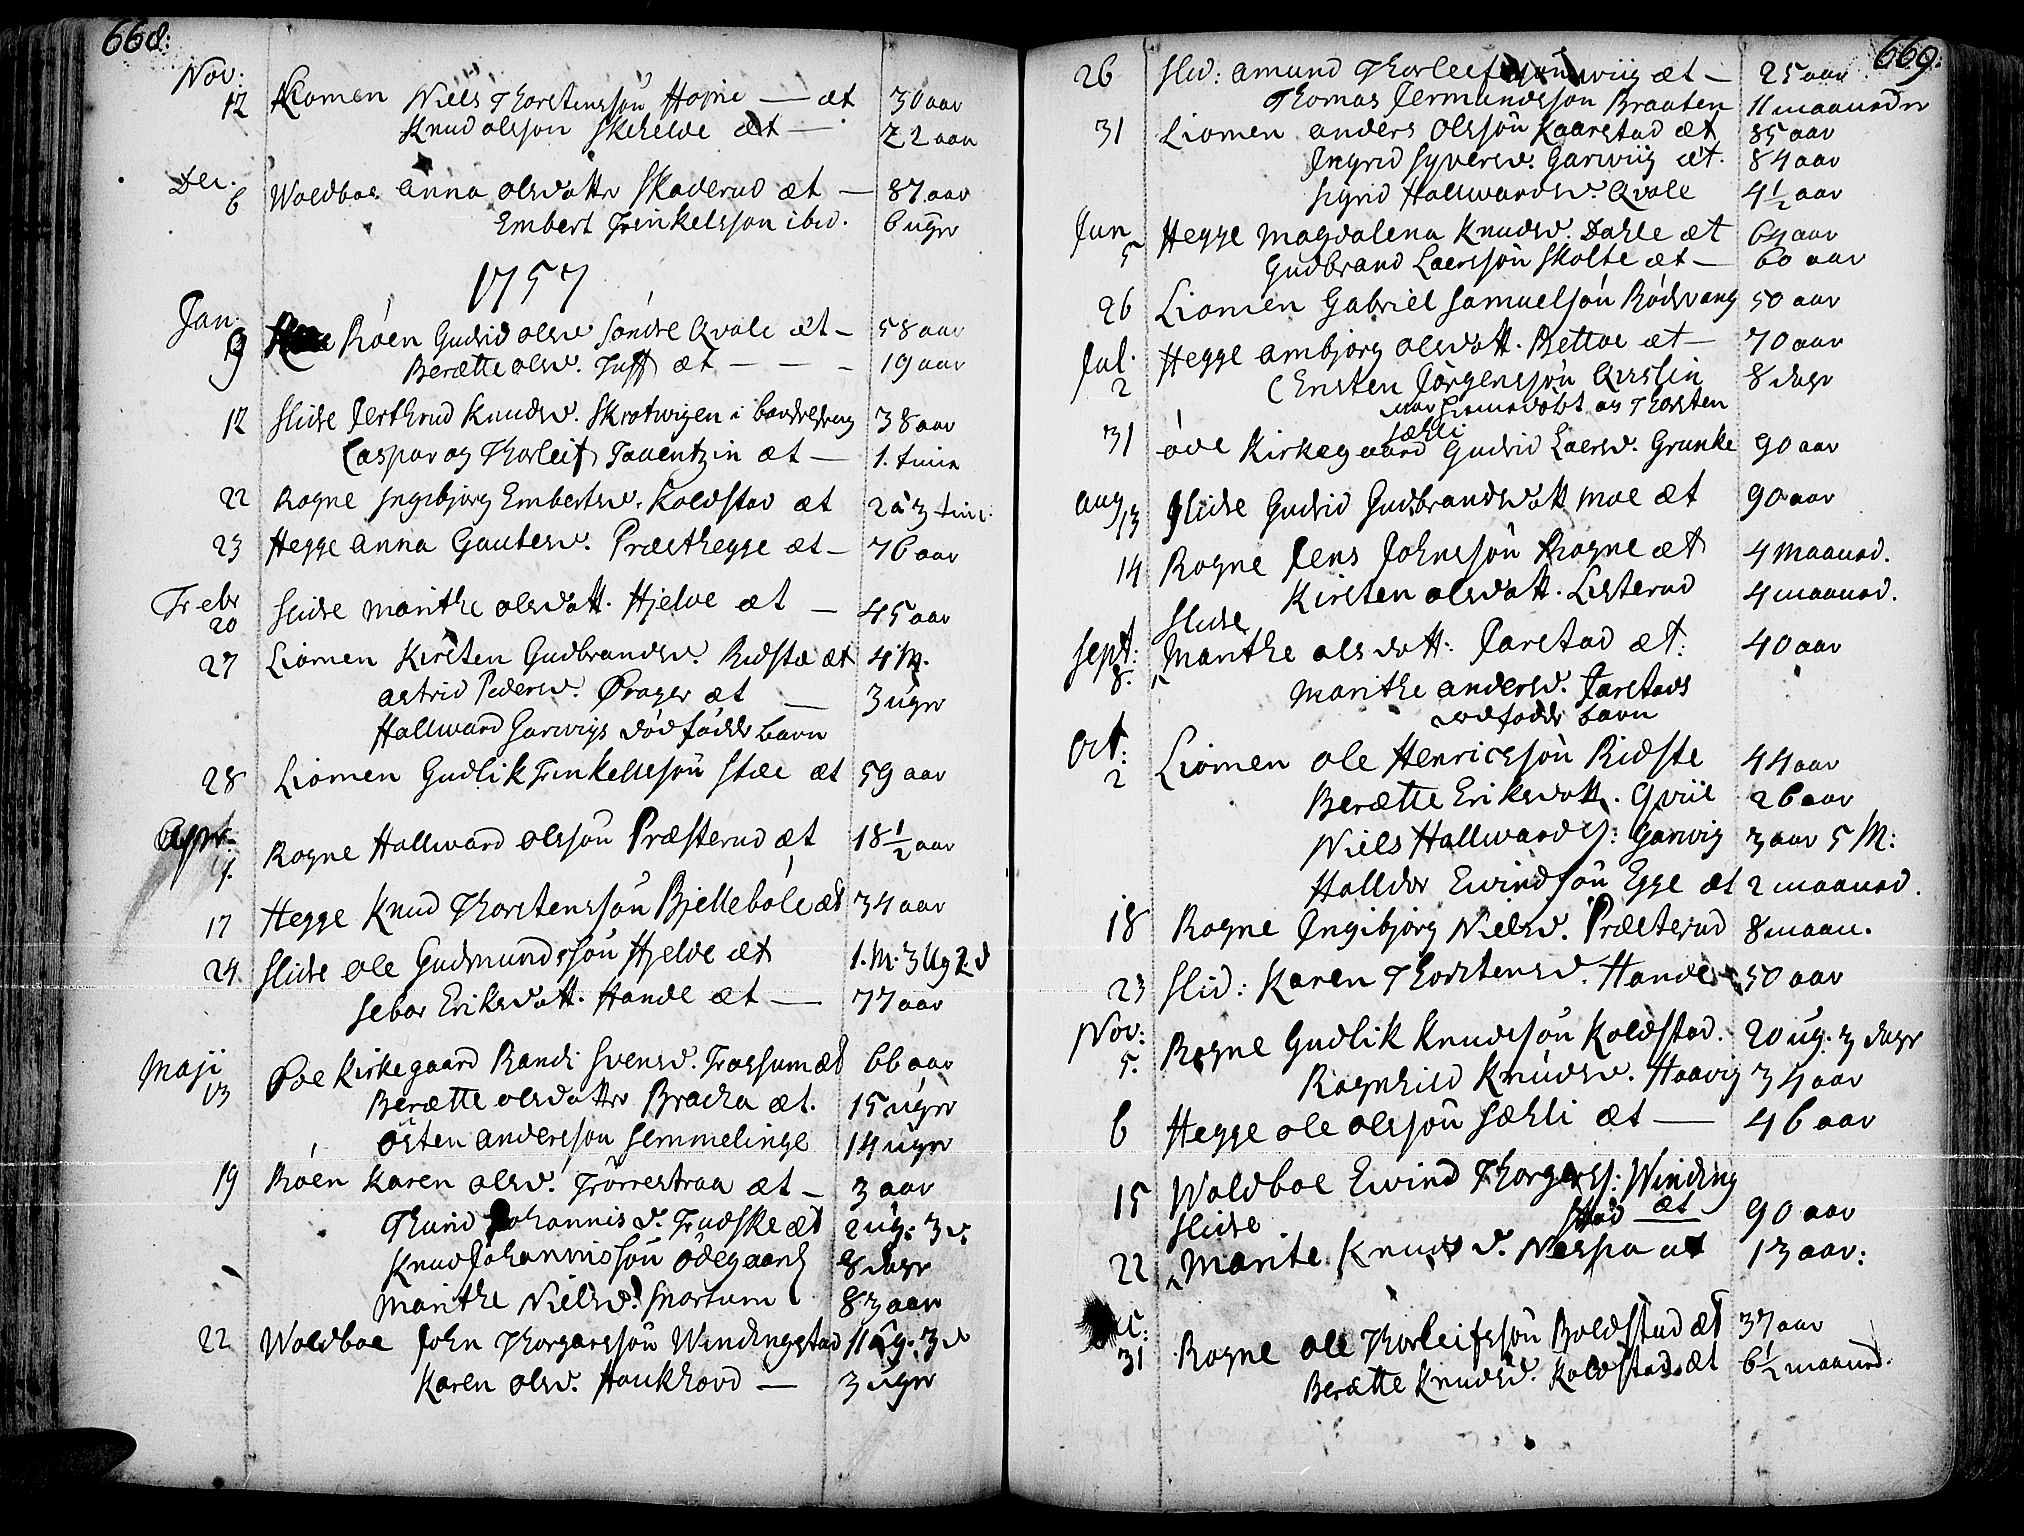 668:
Nov:
12 Liomen Niels Thorstenssøn Højne — æt 30 aar
Knud olssøn Skhelde æt — 22 aar
Dec.
6 Woldboe anna olsdottr Skaderud æt — 87 aar
Embert Trinkelsson ibid. 6 ugr
1757
Jan:
9 Røen Gudrid olsd Søndre Qvale æt — 58 aar
Berætte olsd. Tuff æt — — — 19 aar
12 Slidre Jerthrud Knudsd. Skrotwigen i barselseng 38 aar
Caspar og Thorleif Tauentzin æt — 1. time
22 Rogne Ingibjørg Embertsd. Koldstad æt 2 à 3 time:
23 Hegge anna Gautesd. Præsthegge æt — 76 aar
Febr
20 Slidre Marithe olsdatt. Hjelde æt — 45 aar
27 Liomen Kirsten Gudbrandsd. Ridste æt 4 M.
astrid Pedersd. Prager æt — 3 ugr
Hallward Garwigs død fødde barn
28 Liomen Gudlik Trinkelssøn Stee æt 59 aar
Apr:
Rogne Hallward olssøn Præsterud æt 18 1/2 aar
17 Hegge Knud Thorstenssøn Bjellebøle æt 34 aar
24 Slidre ole Gudmundssøn Hjelde æt 1. M. 3 Ug 2 d
Sebor Eriksdatt. Hande æt — 77 aar
Maji
13 Øde Kirkegaard Randi Svensd. Fossum æt 66 aar
Berætte olsdattr Bracka æt. 15 ugr
østen anderssøn Semmelinge 14 ugr
19 Røen Karen olsd. Trørrestraa æt — 3 aar
Thurid Johannisd. Fudske æt 2 ug: 3 d.
Knud Johannissøn ødegaard 8 dagr
Marithe Nielsd. Snortum 83 aar
22 Woldboe John Thorgerssøn Windingstad 11 ug. 3 d
Karen olsd. Haukhovd — 3 ugr
669.
26 Slid: amund Thorleifssøn wiig æt — 25 aar
Thomas Jermundssøn Braaten 11 maanedr
31 Liomen anders Olssøn Kaarstad æt 85 aar
Ingrid Syversd. Garwiig æt. 84 aar
Sigrid Hallwardsd. Qvale 4 1/2 aar
Jun
5 Hegge Magdalena Knudsd. Dahle æt 64 aar
Gudbrand Laerssøn Skolte æt — 60 aar
26 Liomen Gabriel Samuelsøn Rødsvang 50 aar
Jul.
2 Hegge ambjørg olsdatt. Bettoe æt — 70 aar
Ensten Jørgenssøn 8 dagr
og Thosten
Sæhli
31 øde Kirkegaard Gudrid Laersd. Grunke 90 aar
Aug
13 Slidre Gudrid Gudbrandsdatt Moe æt 90 aar
14 Rogne Jens Johnssøn Rogne æt 4 Maaned.
Kirsten olsdatt. Listerud 4 maaned.
Sept:
8. Slidre Marithe olsdatt: Jarstad æt: 40 aar
Marithe andersd. Jarstads
dødfødde barn
Oct:
2 Liomen ole Henricssøn Ridste 44 aar
Berætte Eriksdatt. Qviie 26 aar
Niels Hallwards: Garwig 3 aar 5 M:
Halldor Ewindsøn Egge æt 2 maaned.
18 Rogne Ingibjørg Nielsd. Præsterud 8 maan.
23 Slid: Karen Thorstensd. Hande 50 aar
Nov:
5. Rogne Gudlik Knudssøn Koldstad. 20 ug. 3 dagr
Ragnhild Knudsd. Haavig 34 aar
6 Hegge ole olssøn Sæhli æt — 46 aar
15 Woldboe Ewind Thorgers: Winding
stad æt 90 aar
22 Slidre Marite Knudsd. Nespa æt 13 aar:
31 Rogne ole Thorleifssøn Boldstad æt 37 aar
Berætte Knudsd. Koldstad æt 6 1/2 maaned.